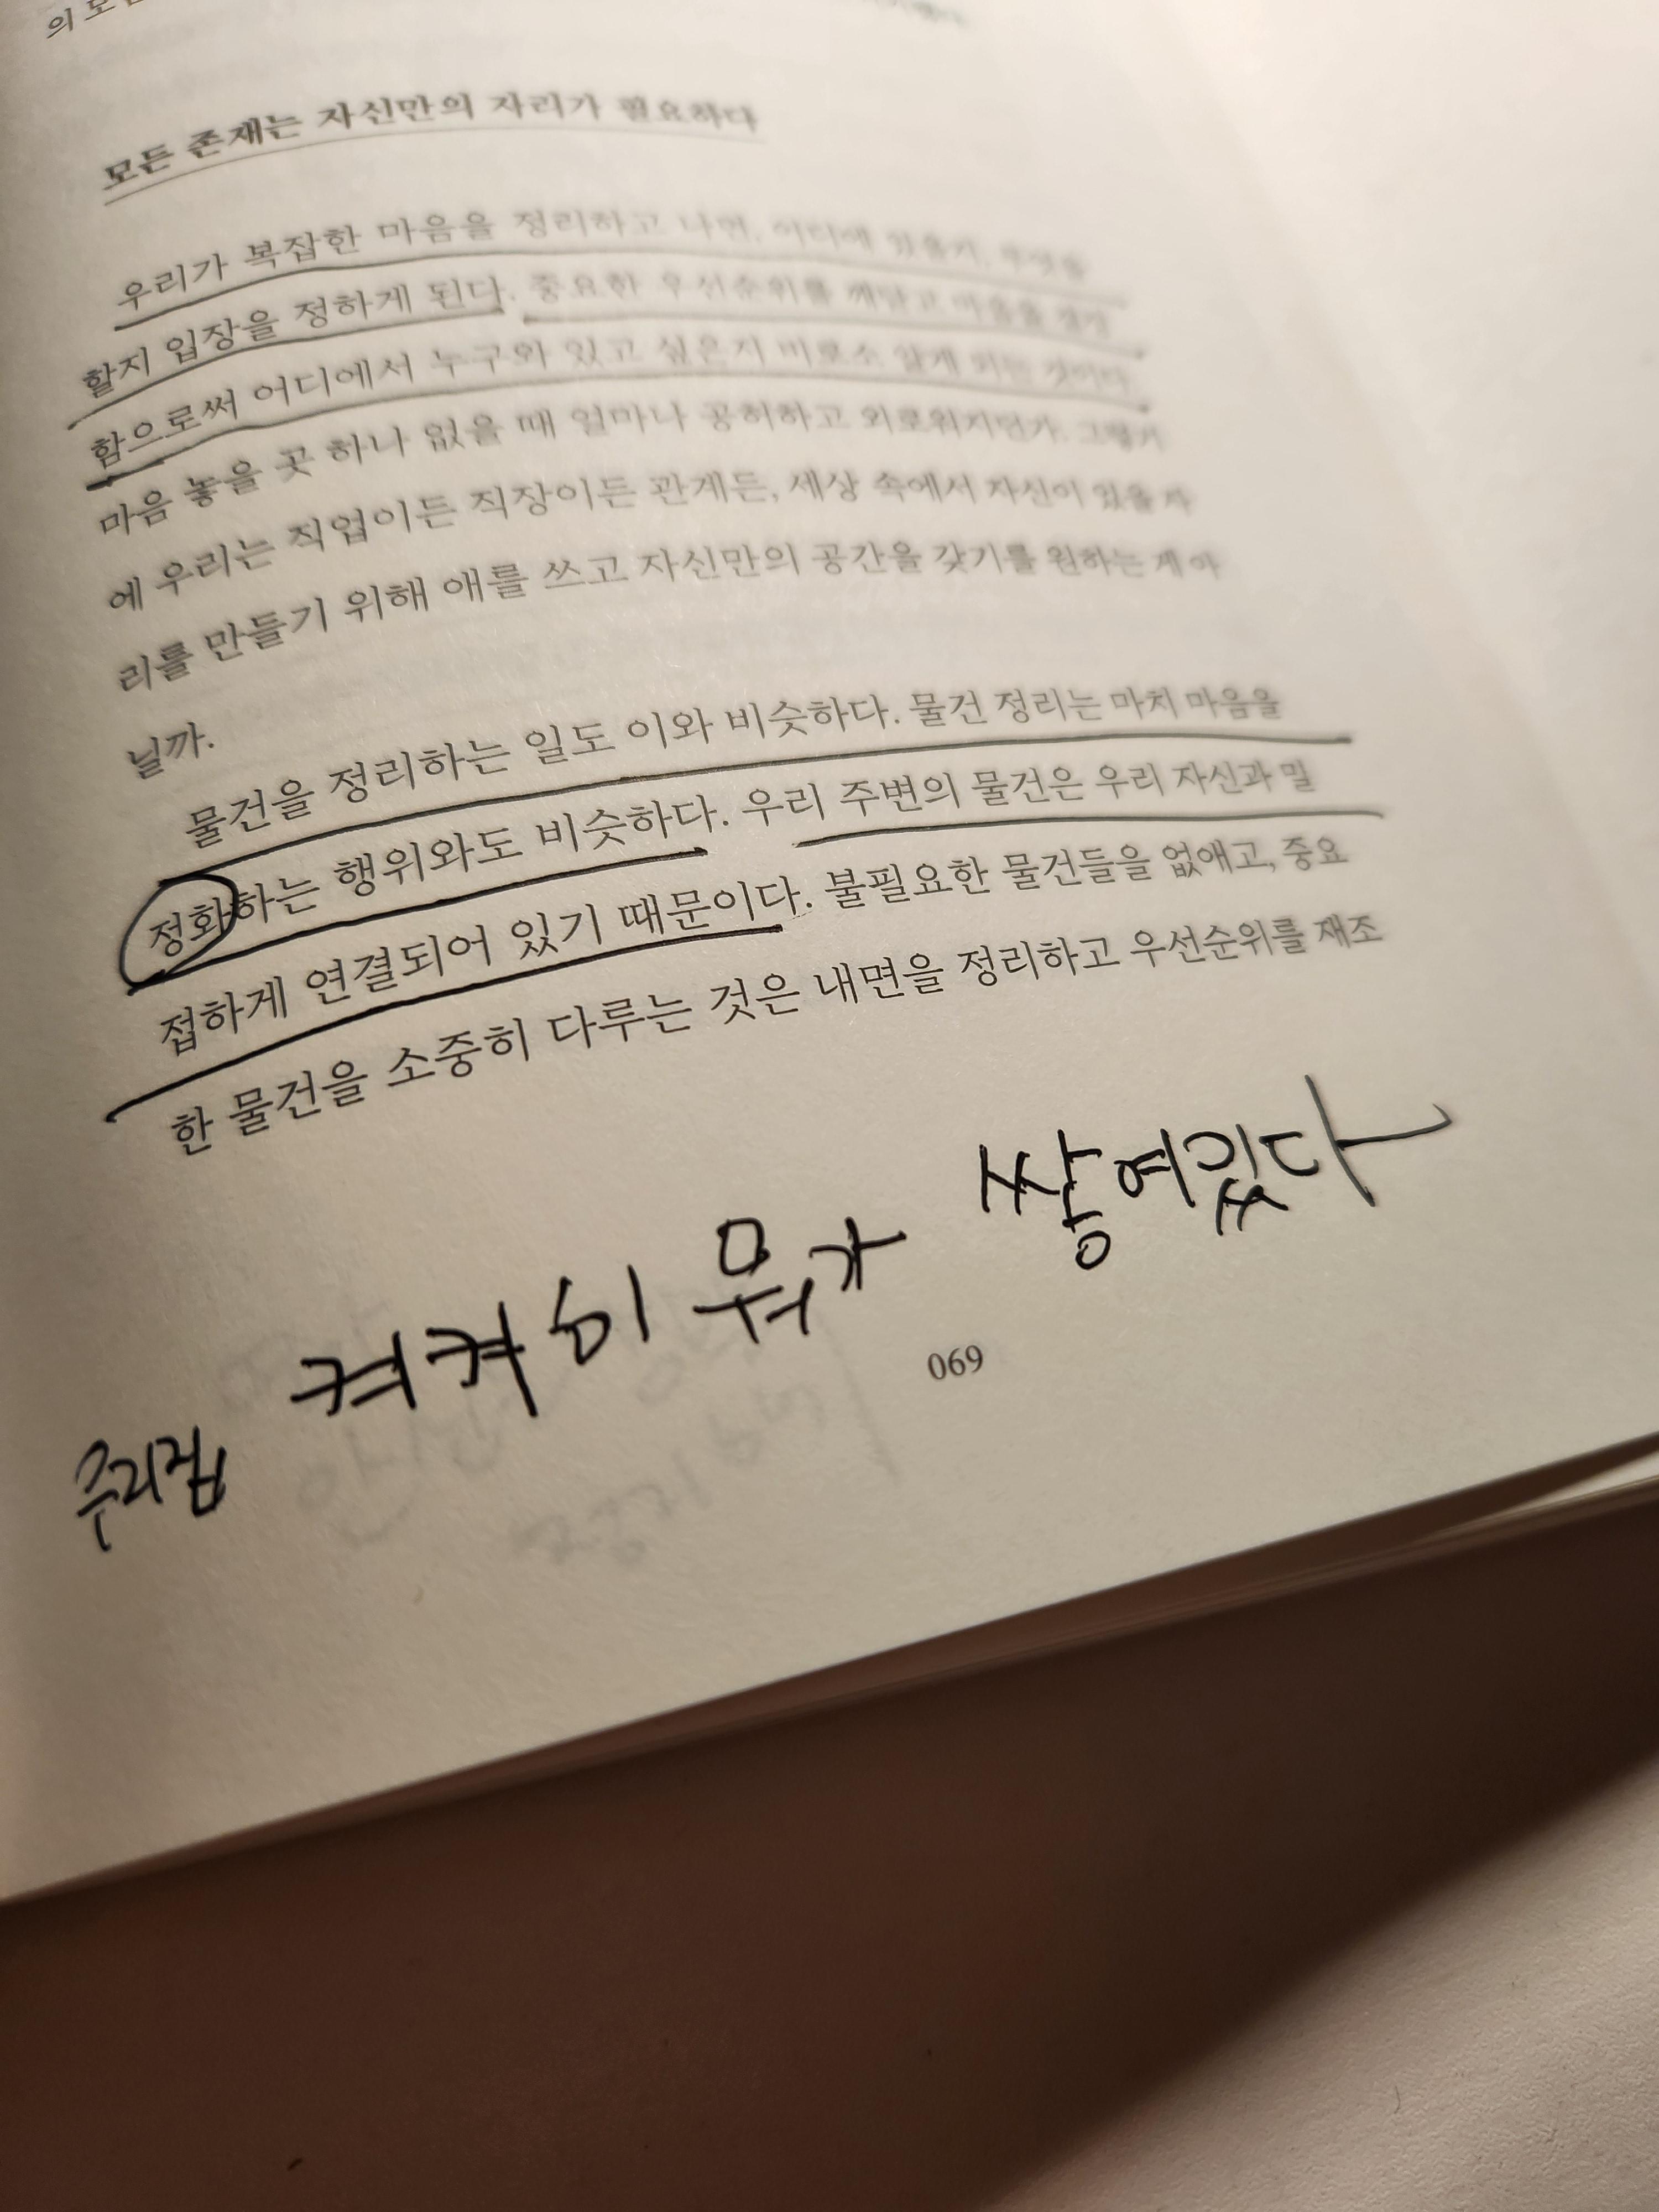 의 모
모든 존재는 자신만의 자리가 필요하다
우리가 복잡한 마음을 정리하고 나면, 어디에 있을지, 무엇을
할지 입장을 정하게 된다. 중요한 우선순위를 깨닫고 마음을 결정
함으로써 어디에서 누구와 있고 싶은지 비로소 알게 되는 것이다.
마음 놓을 곳 하나 없을 때 얼마나 공허하고 외로워지던가. 그렇기
에 우리는 직업이든 직장이든 관계든, 세상 속에서 자신이 있을 자
리를 만들기 위해 애를 쓰고 자신만의 공간을 갖기를 원하는 게 아
닐까.
물건을 정리하는 일도 이와 비슷하다. 물건 정리는 마치 마음을
정화하는 행위와도 비슷하다. 우리 주변의 물건은 우리 자신과 밀
접하게 연결되어 있기 때문이다. 불필요한 물건들을 없애고, 중요
한 물건을 소중히 다루는 것은 내면을 정리하고 우선순위를 재조
우리집 켜켜이 뭐가 쌓여있다
069